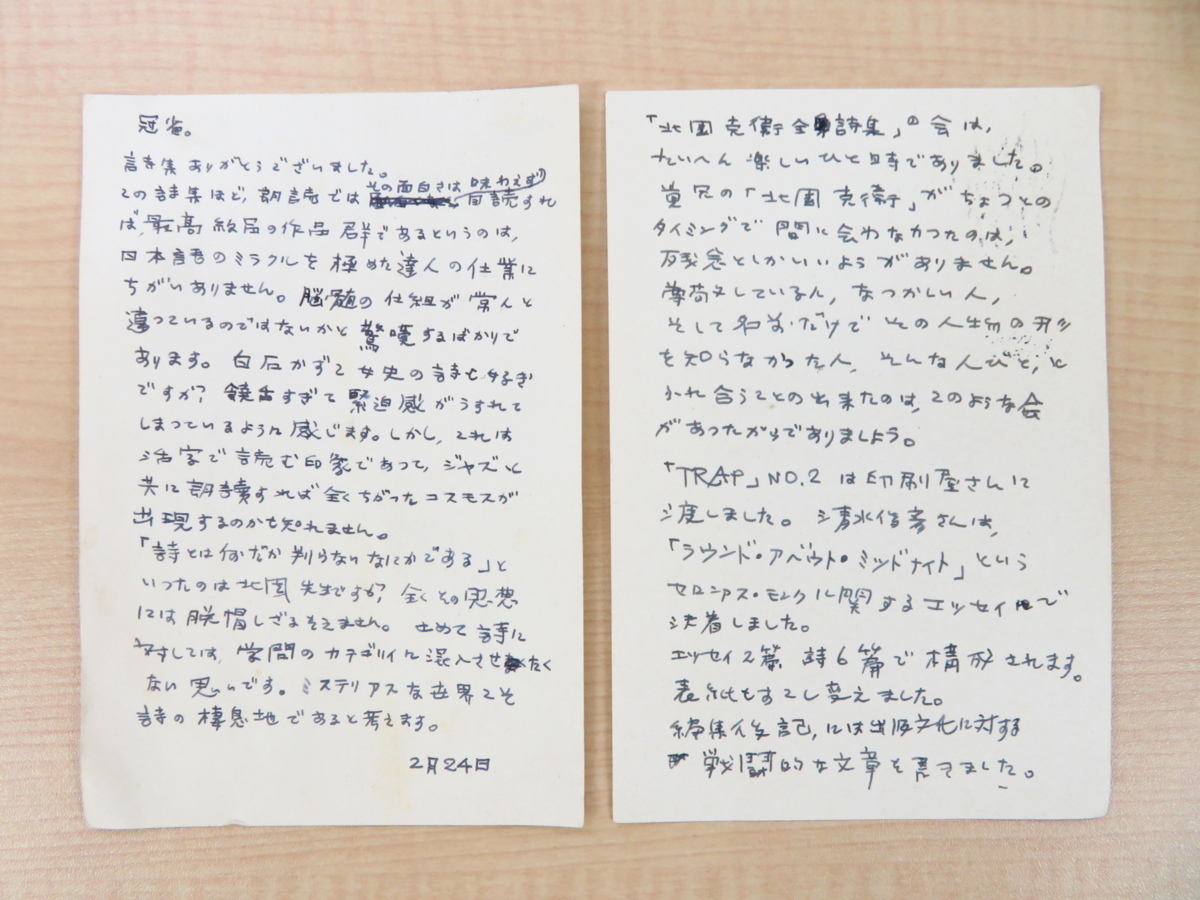 冠省。
詩集ありがとうございました。
この詩集ほど、朗読ではその面白さは味わえず目読すれ
ば最高級品の作品群であるというのは、
日本語のミラクルを極めた達人の仕業に
ちがいありません。脳髄の仕組が常人と
違っているのではないかと驚嘆するばかりで
あります。白石かずこ女史の詩も好き
ですが、饒舌すぎて緊迫感がうすれて
しまっているように感じます。しかし、これは
活字で読む印象であって、ジャズと
共に朗読すれば全くちがったコスモスが
出現するのかも知れません。
「詩とは何だか判らないなにかである」と
いったのは北園先生ですが、全くその思想
には脱帽しざるをえません。せめて詩に
対しては、学問のカテゴリイに混入させたく
ない思いです。ミステリアスな世界こそ
詩の棲息地であると考えます。
2月24日
「北園克衛全詩集」の会は、
たいへん楽しいひと時でありました。
貴兄の「北園克衛」がちょっとの
タイミングで間に会わなかったのは、
残念としかいいようがありません。
尊敬している人、なつかしい人、
そして名前だけでその人物の形
を知らなかった人、そんな人びと、と
ふれ合うことの出来たのは、このような会
があったからでありましょう。
「TRAP」NO.2 は印刷屋さんに
渡しました。清水俊彦さんは、
「ラウンド・アベウト・ミッドナイト」という
セロニアス・モンクに関するエッセイで
決着しました。
エッセイ2篇 詩6篇で構成されます。
表紙もすこし変えました。
編集後記、には出版文化に対する
戦闘的な文章を書きました。